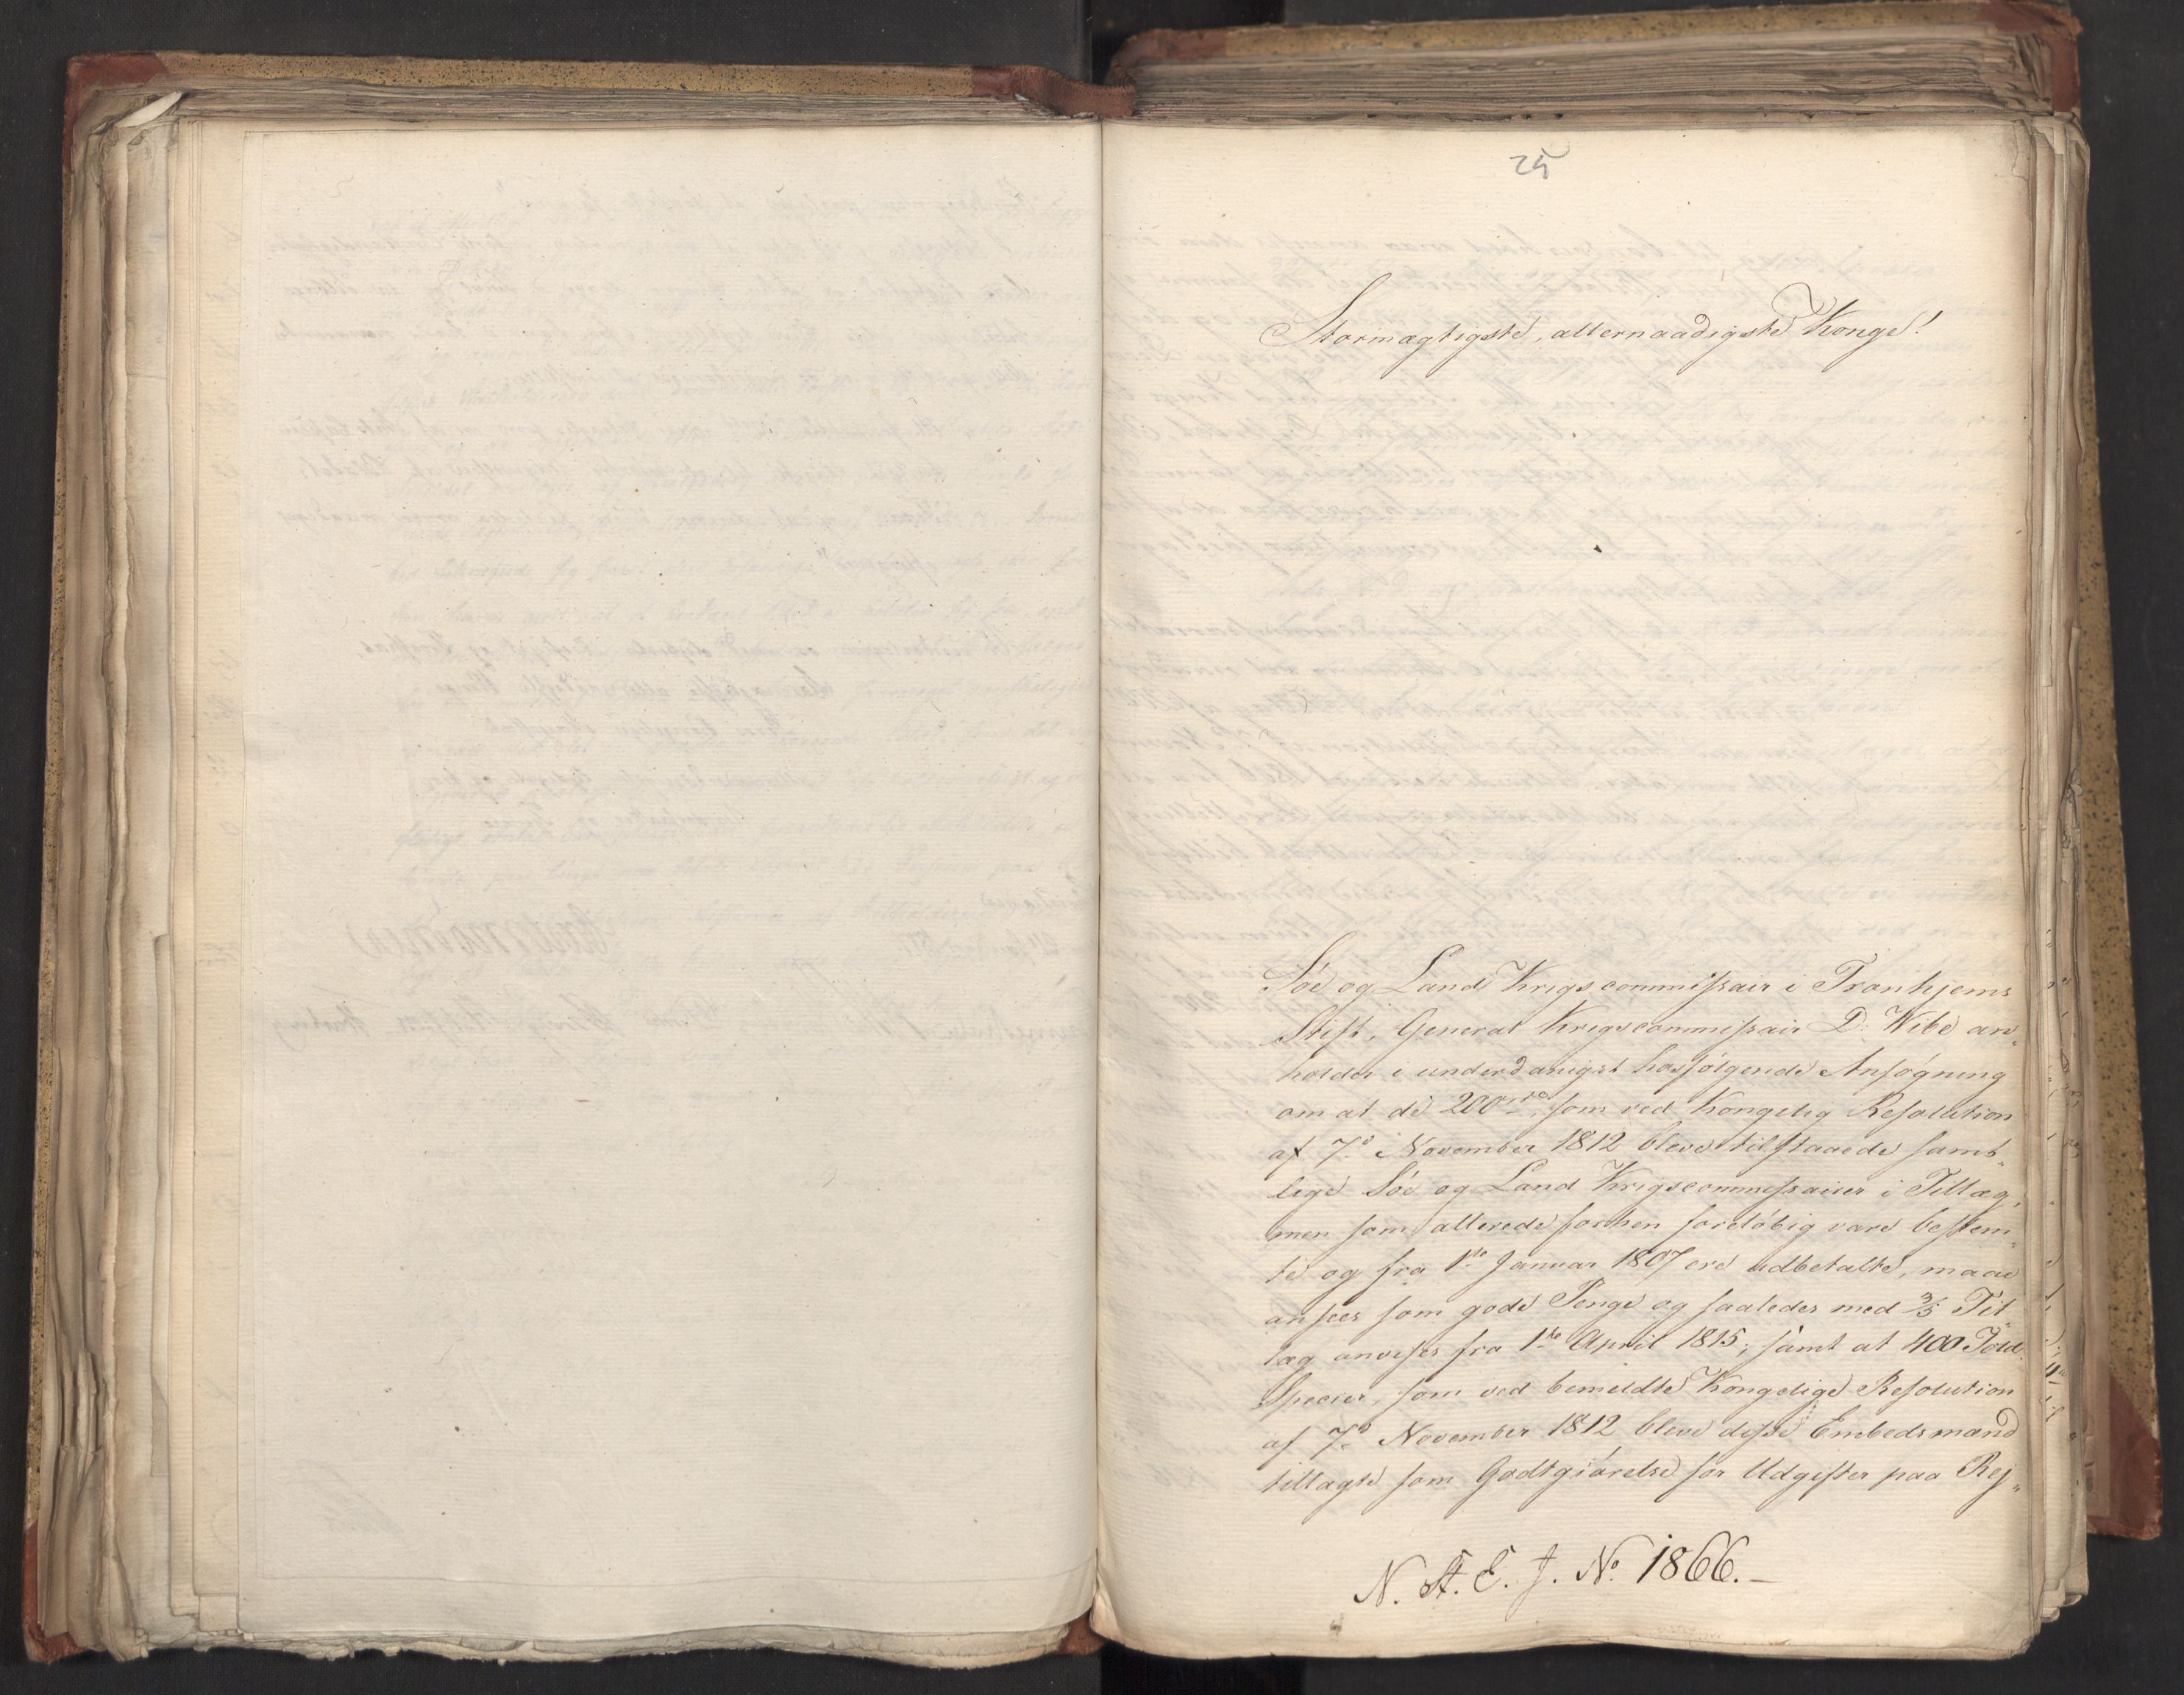 25
Stormægtigste, allernaadigste Konge!
Söe og Land Krigscommissair i Tronhjems
Stift, General Krigscommissair D: Wibe an„
holder i underdanigst hosfölgende Ansögning
om at de 200 rd, som ved Kongelig Resolution
af 7de November 1812 bleve tilstaaede samt„
lige Söe og Land Krigscommissairer i Tillæg,
men som allerede forhen foreløbig vare bestem„
te og fra 1te Januar 1807 ere udbetalte, maae
ansees som gode Penge og saaledes med 3/5 Til„
læg anvises fra 1te April 1815; samt at 400 Told
Species, som ved bemeldte Kongelige Resolution
af 7de November 1812 bleve disse Embedsmænd
tillagte som Godtgiörelse for Udgifter paa Rej„
N. St. E. J. No. 1866.–